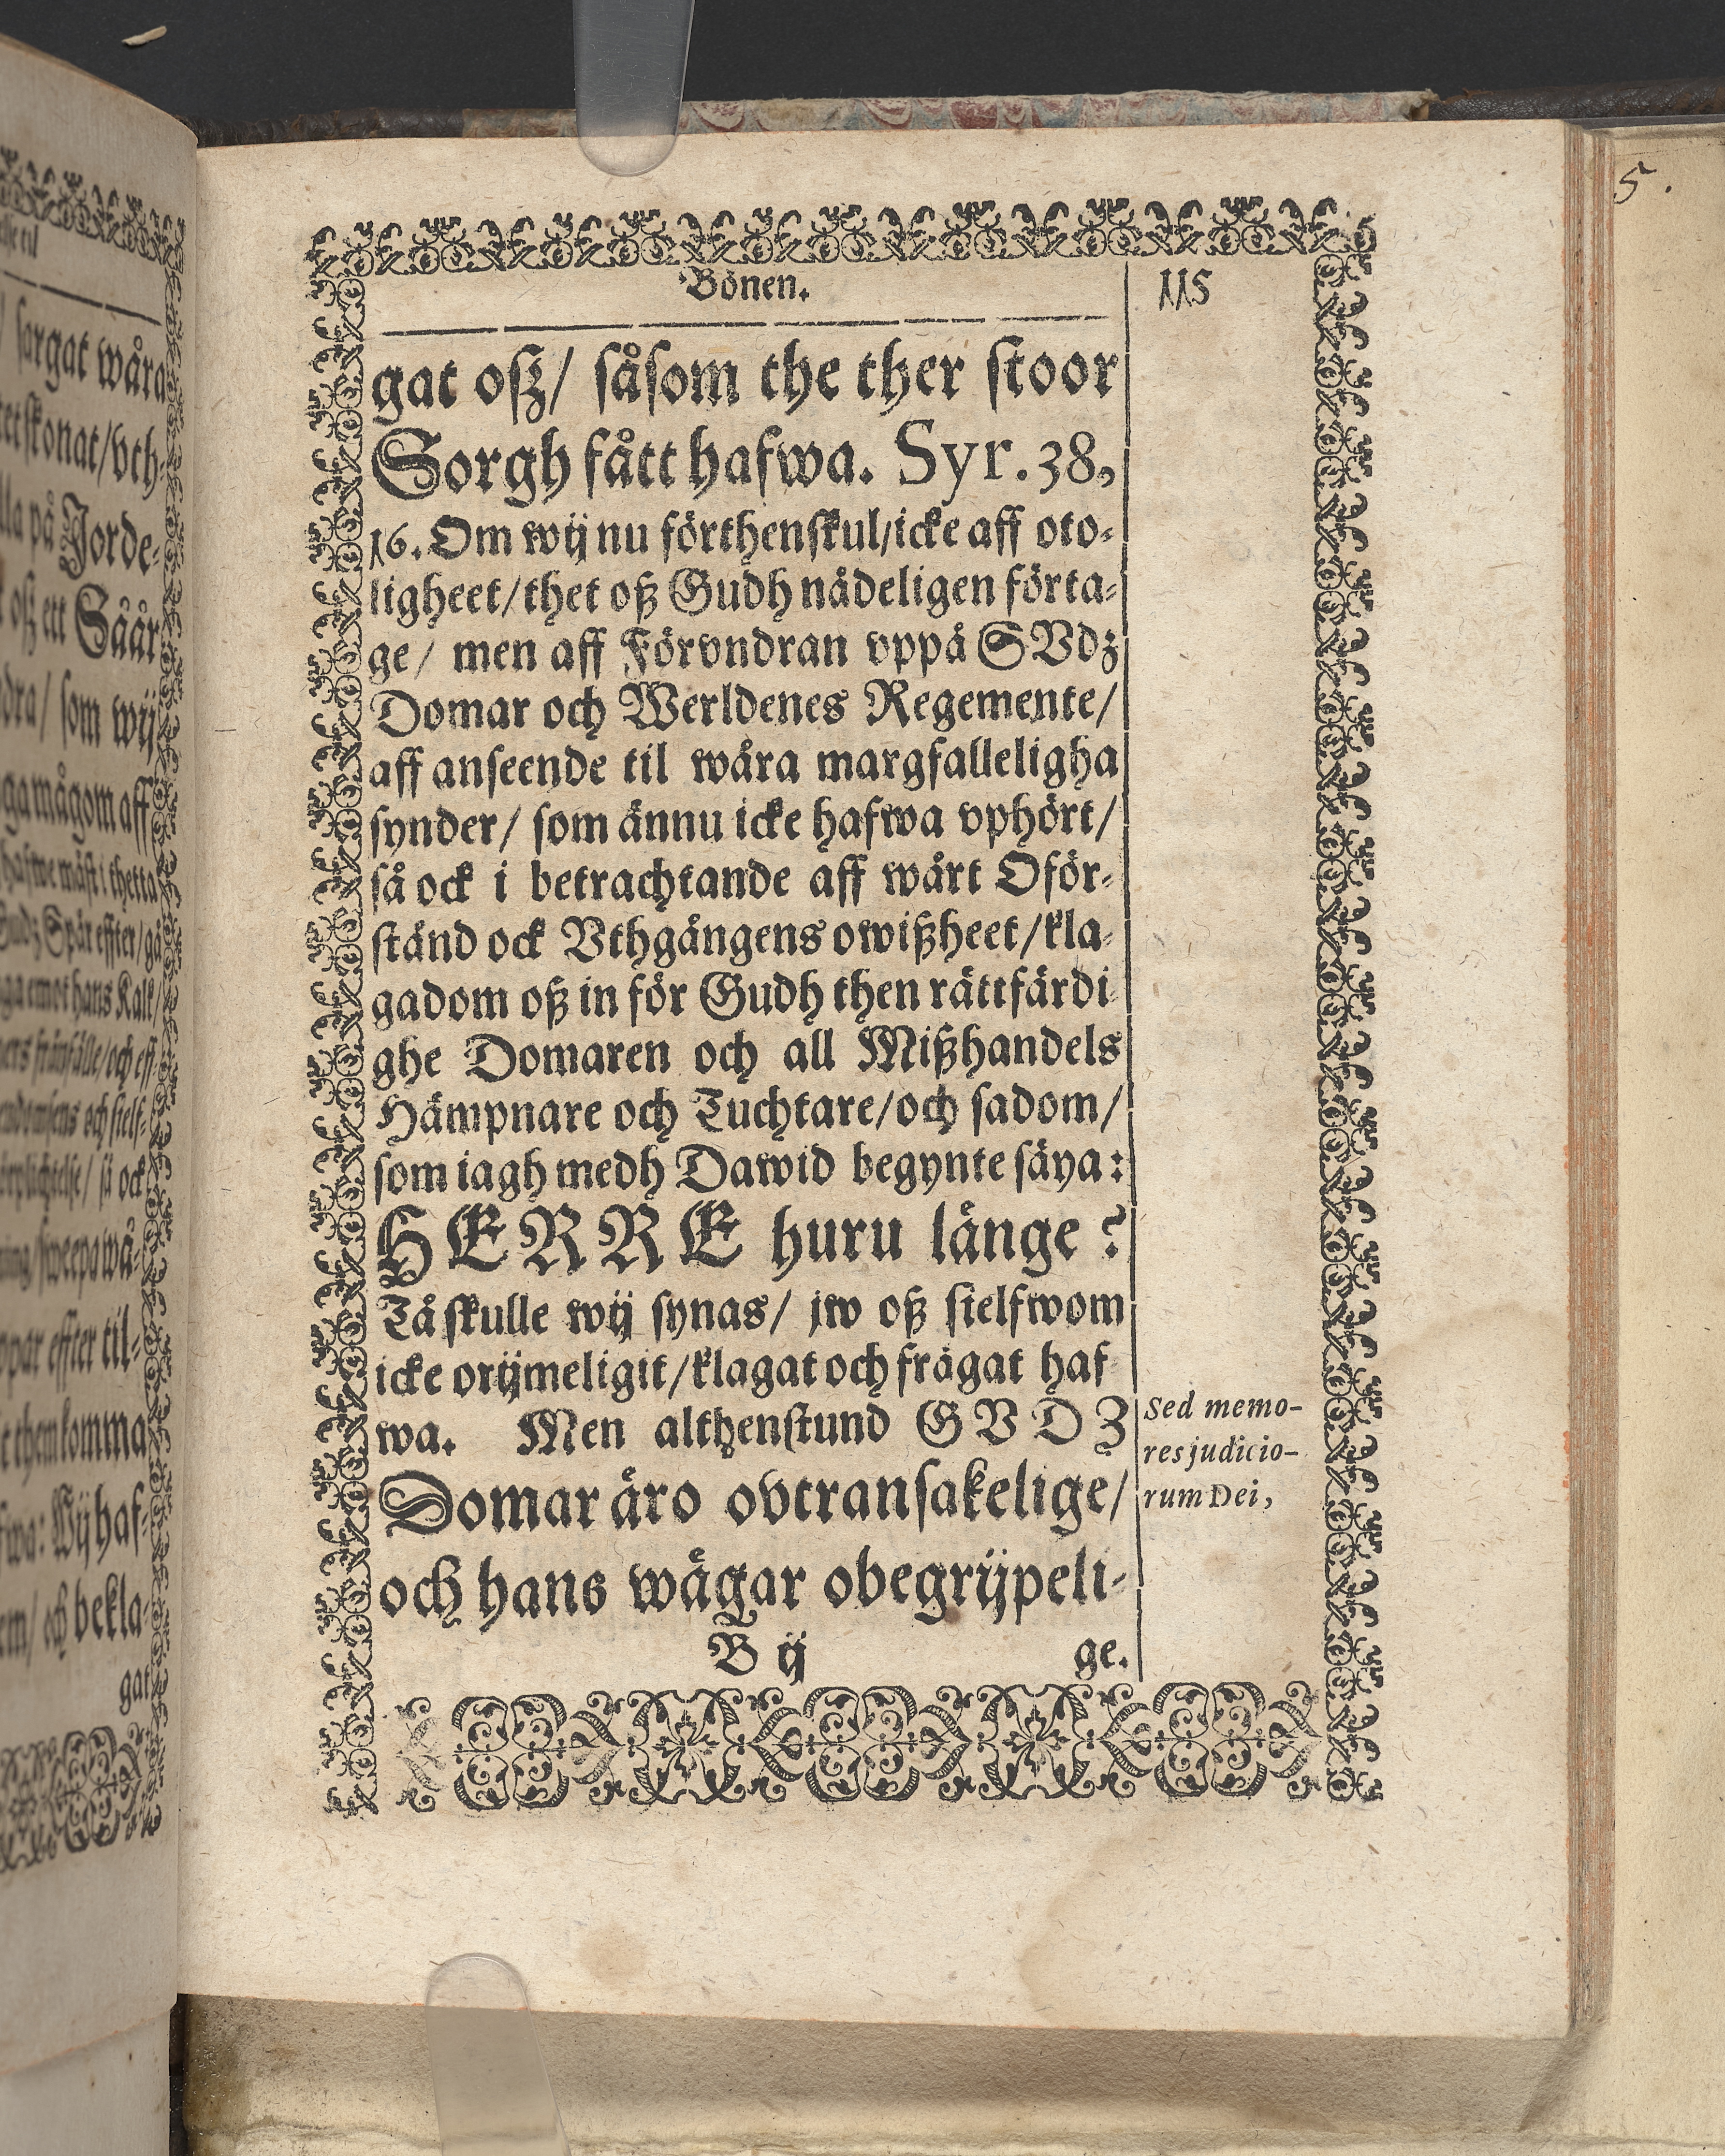 Bönen.
115
gat oſz/ ſåſom the ther ſtoor
Sorgh fått hafwa. Syr. 38,
16. Om wij nu förthenſkul/icke aff oto-
ligheet/thet oß Gudh nådeligen förta-
ge/ men aff Förvndran vppå GVdz
Domar och Werldenes Regemente/
aff anſeende til wåra margfalleligha
ſynder/ ſom ännu icke hafwa vphört/
ſå ock i betrachtande aff wårt Oför-
ſtånd ock Vthgångens owißheet/kla-
gadom oß in för Gudh then rättfärdi-
ghe Domaren och all Mißhandels
Hämpnare och Tuchtare/och ſadom/
ſom iagh medh Dawid begynte ſäya:
HERRE huru länge?
Tå ſkulle wij ſynas/ jw oß ſielfwom
icke orijmeligit/klagat och frågat haf-
wa. Men althenſtund GVDZ
Domar äro ovtranſakelige/
och hans wägar obegrijpeli-
B ij
ge.
Sed memo-
res judicio-
rum Dei,
5.
ſargat wåra
ſkonat/vth-
på Jorde-
oß ett Såår
ſom wij
mågom aff
gat